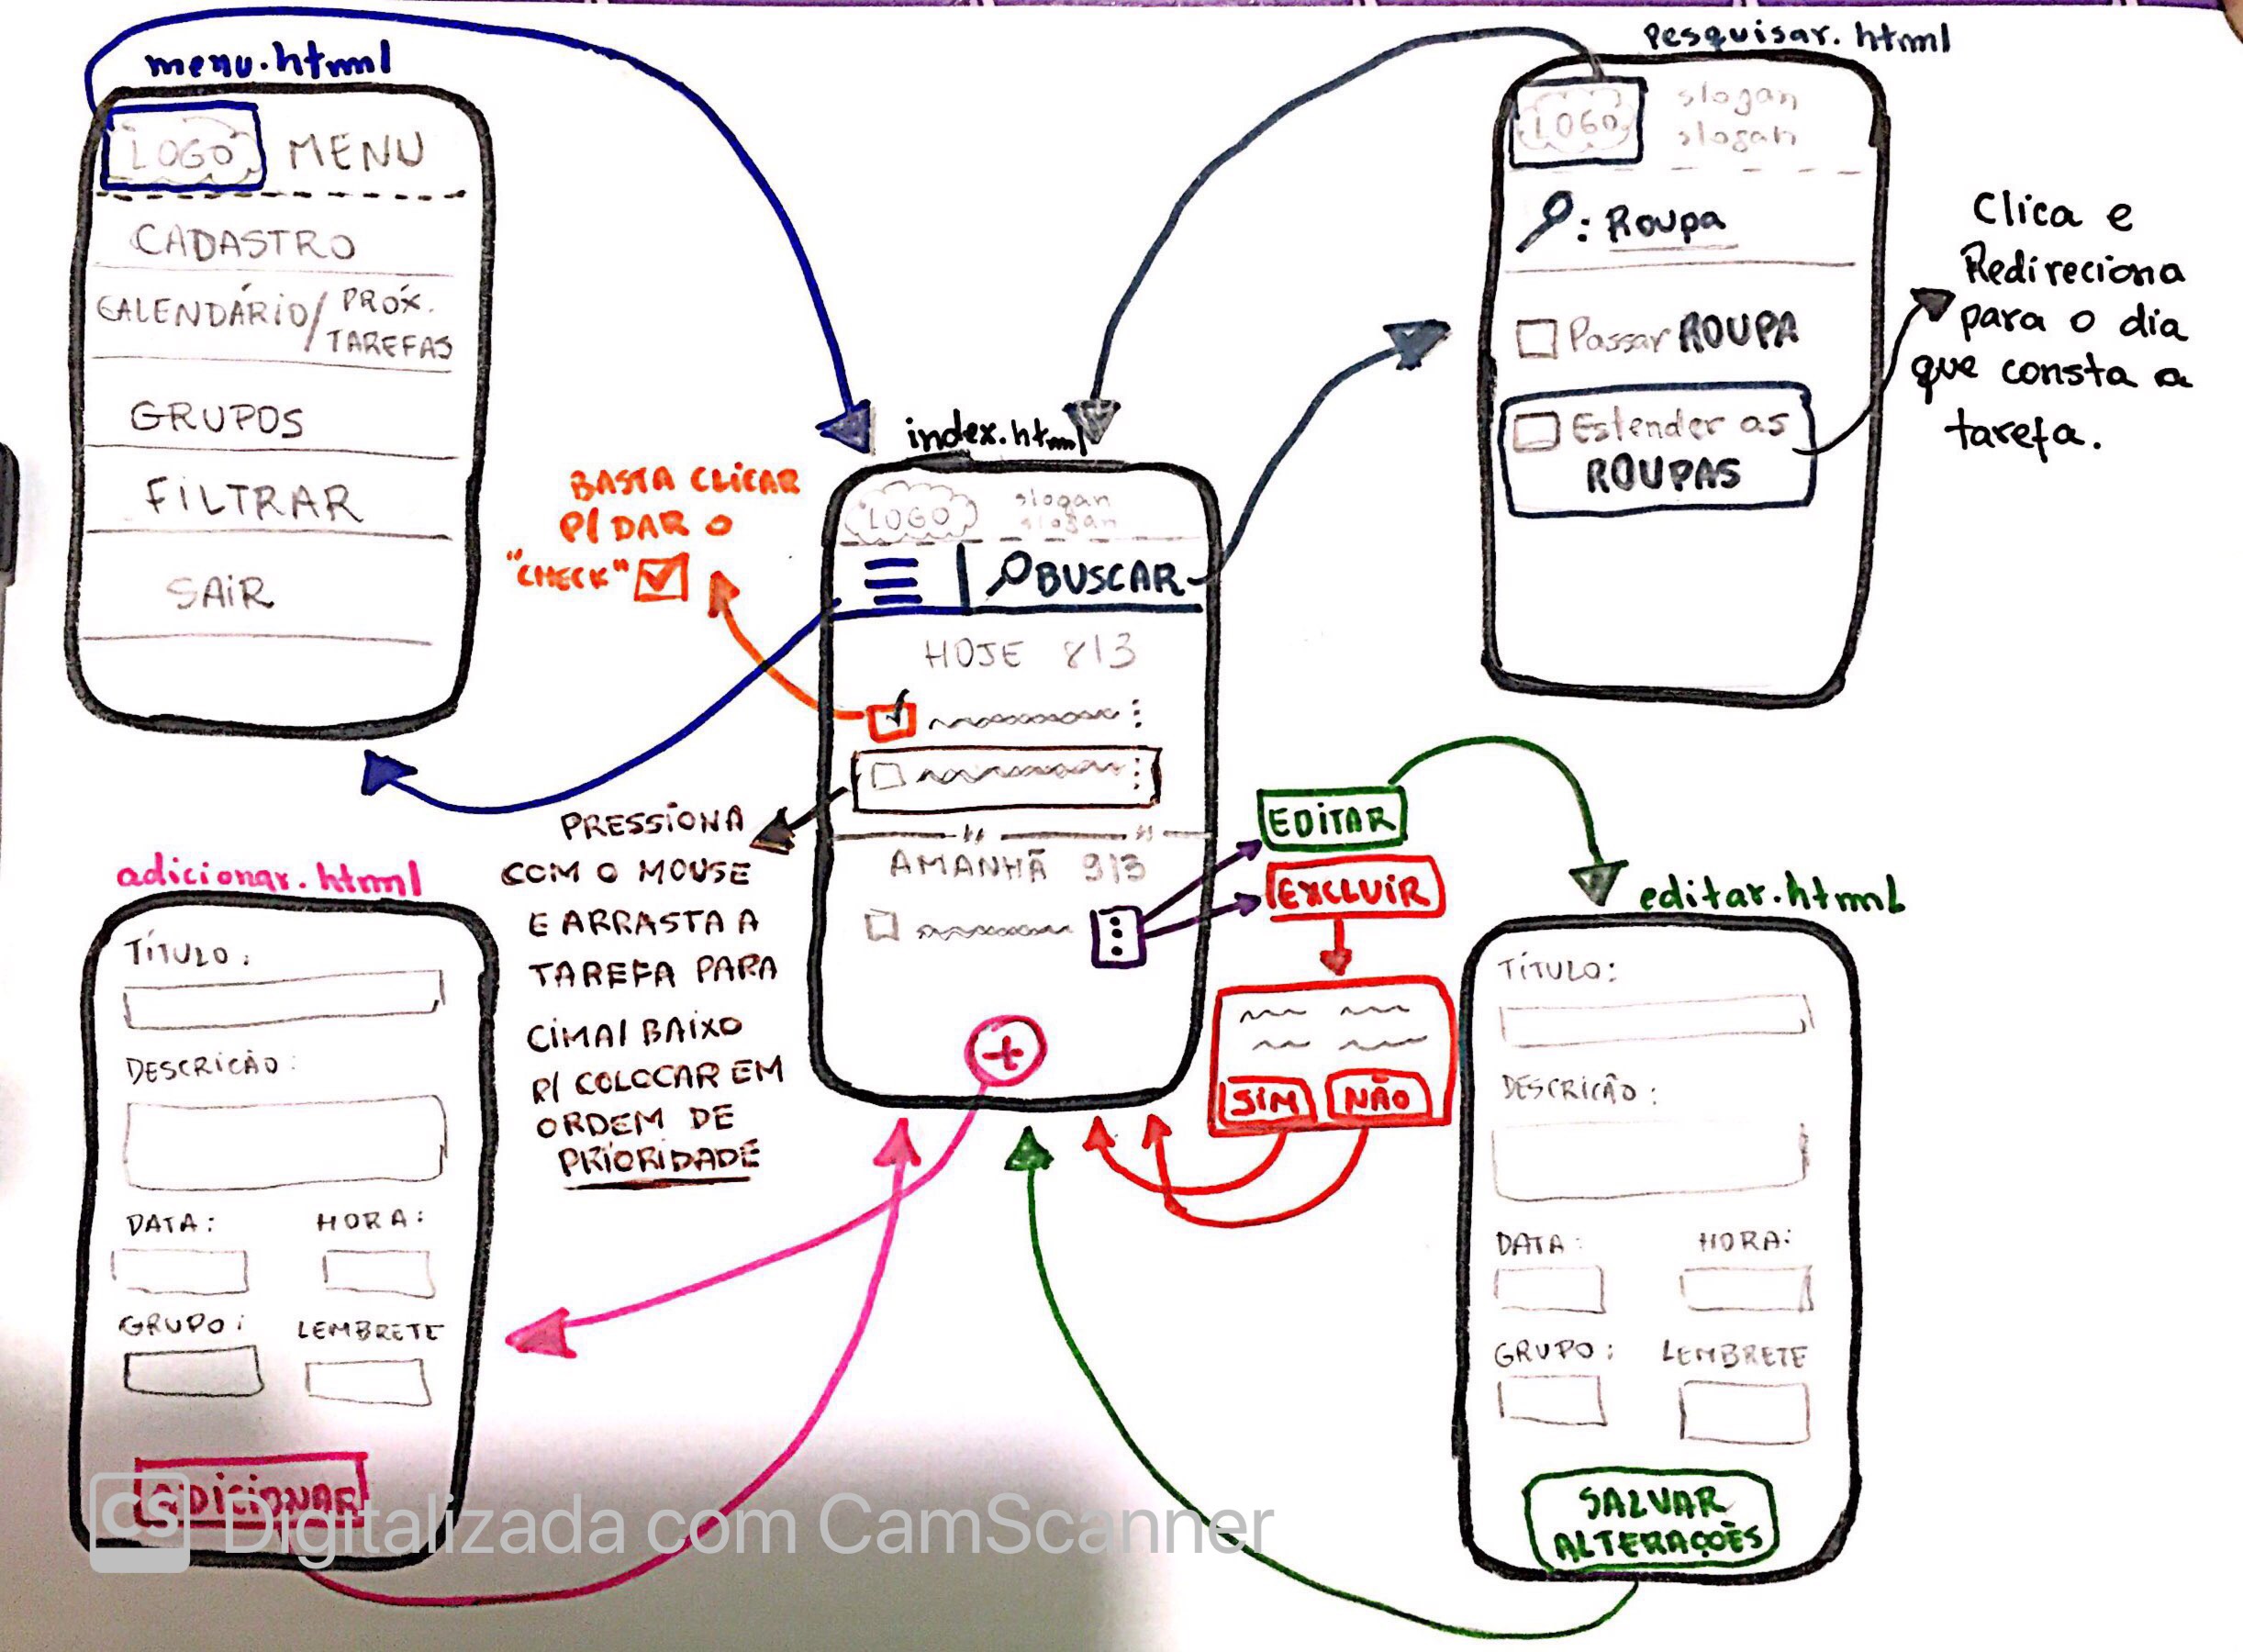 menu.html
LOGO MENU
CADASTRO
CALENDÁRIO/PRÓX.
TAREFAS
GRUPOS
FILTRAR
SAIR
pesquisar.html
LOGO
slogan
slogan
: Roupa
Passar ROUPA
Estender as
ROUPAS
Clica e
Redireciona
para o dia
que consta a
tarefa.
index.html
LOGO
slogan
slogan
BUSCAR
HOJE 8/3
AMANHÃ 9/3
+
BASTA CLICAR
P/ DAR O
"CHECK"
PRESSIONA
COM O MOUSE
E ARRASTA A
TAREFA PARA
CIMA/BAIXO
P/ COLOCAR EM
ORDEM DE
PRIORIDADE
EDITAR
EXCLUIR
SIM NÃO
adicionar.html
TÍTULO:
DESCRICÃO:
DATA: HORA:
GRUPO: LEMBRETE
ADICIONAR
editar.html
TÍTULO:
DESCRICÃO:
DATA: HORA:
GRUPO: LEMBRETE
SALVAR
ALTERAÇÕES
CS Digitalizada com CamScanner